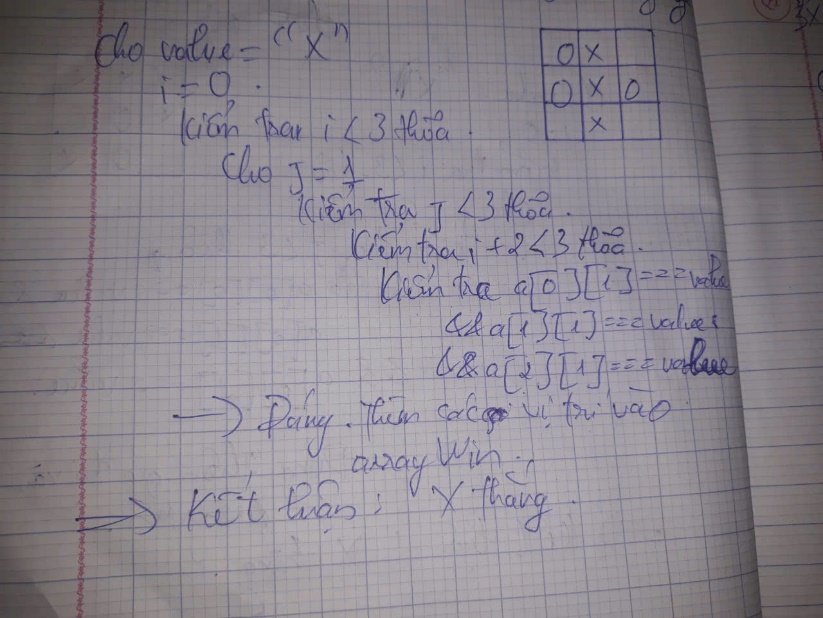 Cho value = "X"
i = 0.
Kiểm tra i < 3 thỏa.
Cho J = 1
Kiểm tra J < 3 thỏa.
Kiểm tra i + 2 < 3 thỏa.
Kiểm tra a[0][1] === value
&& a[1][1] === value
&& a[2][1] === value
→ Đúng. Thêm các vị trí vào
array Win.
→ Kết luận: X thắng.
O X
O X O
X